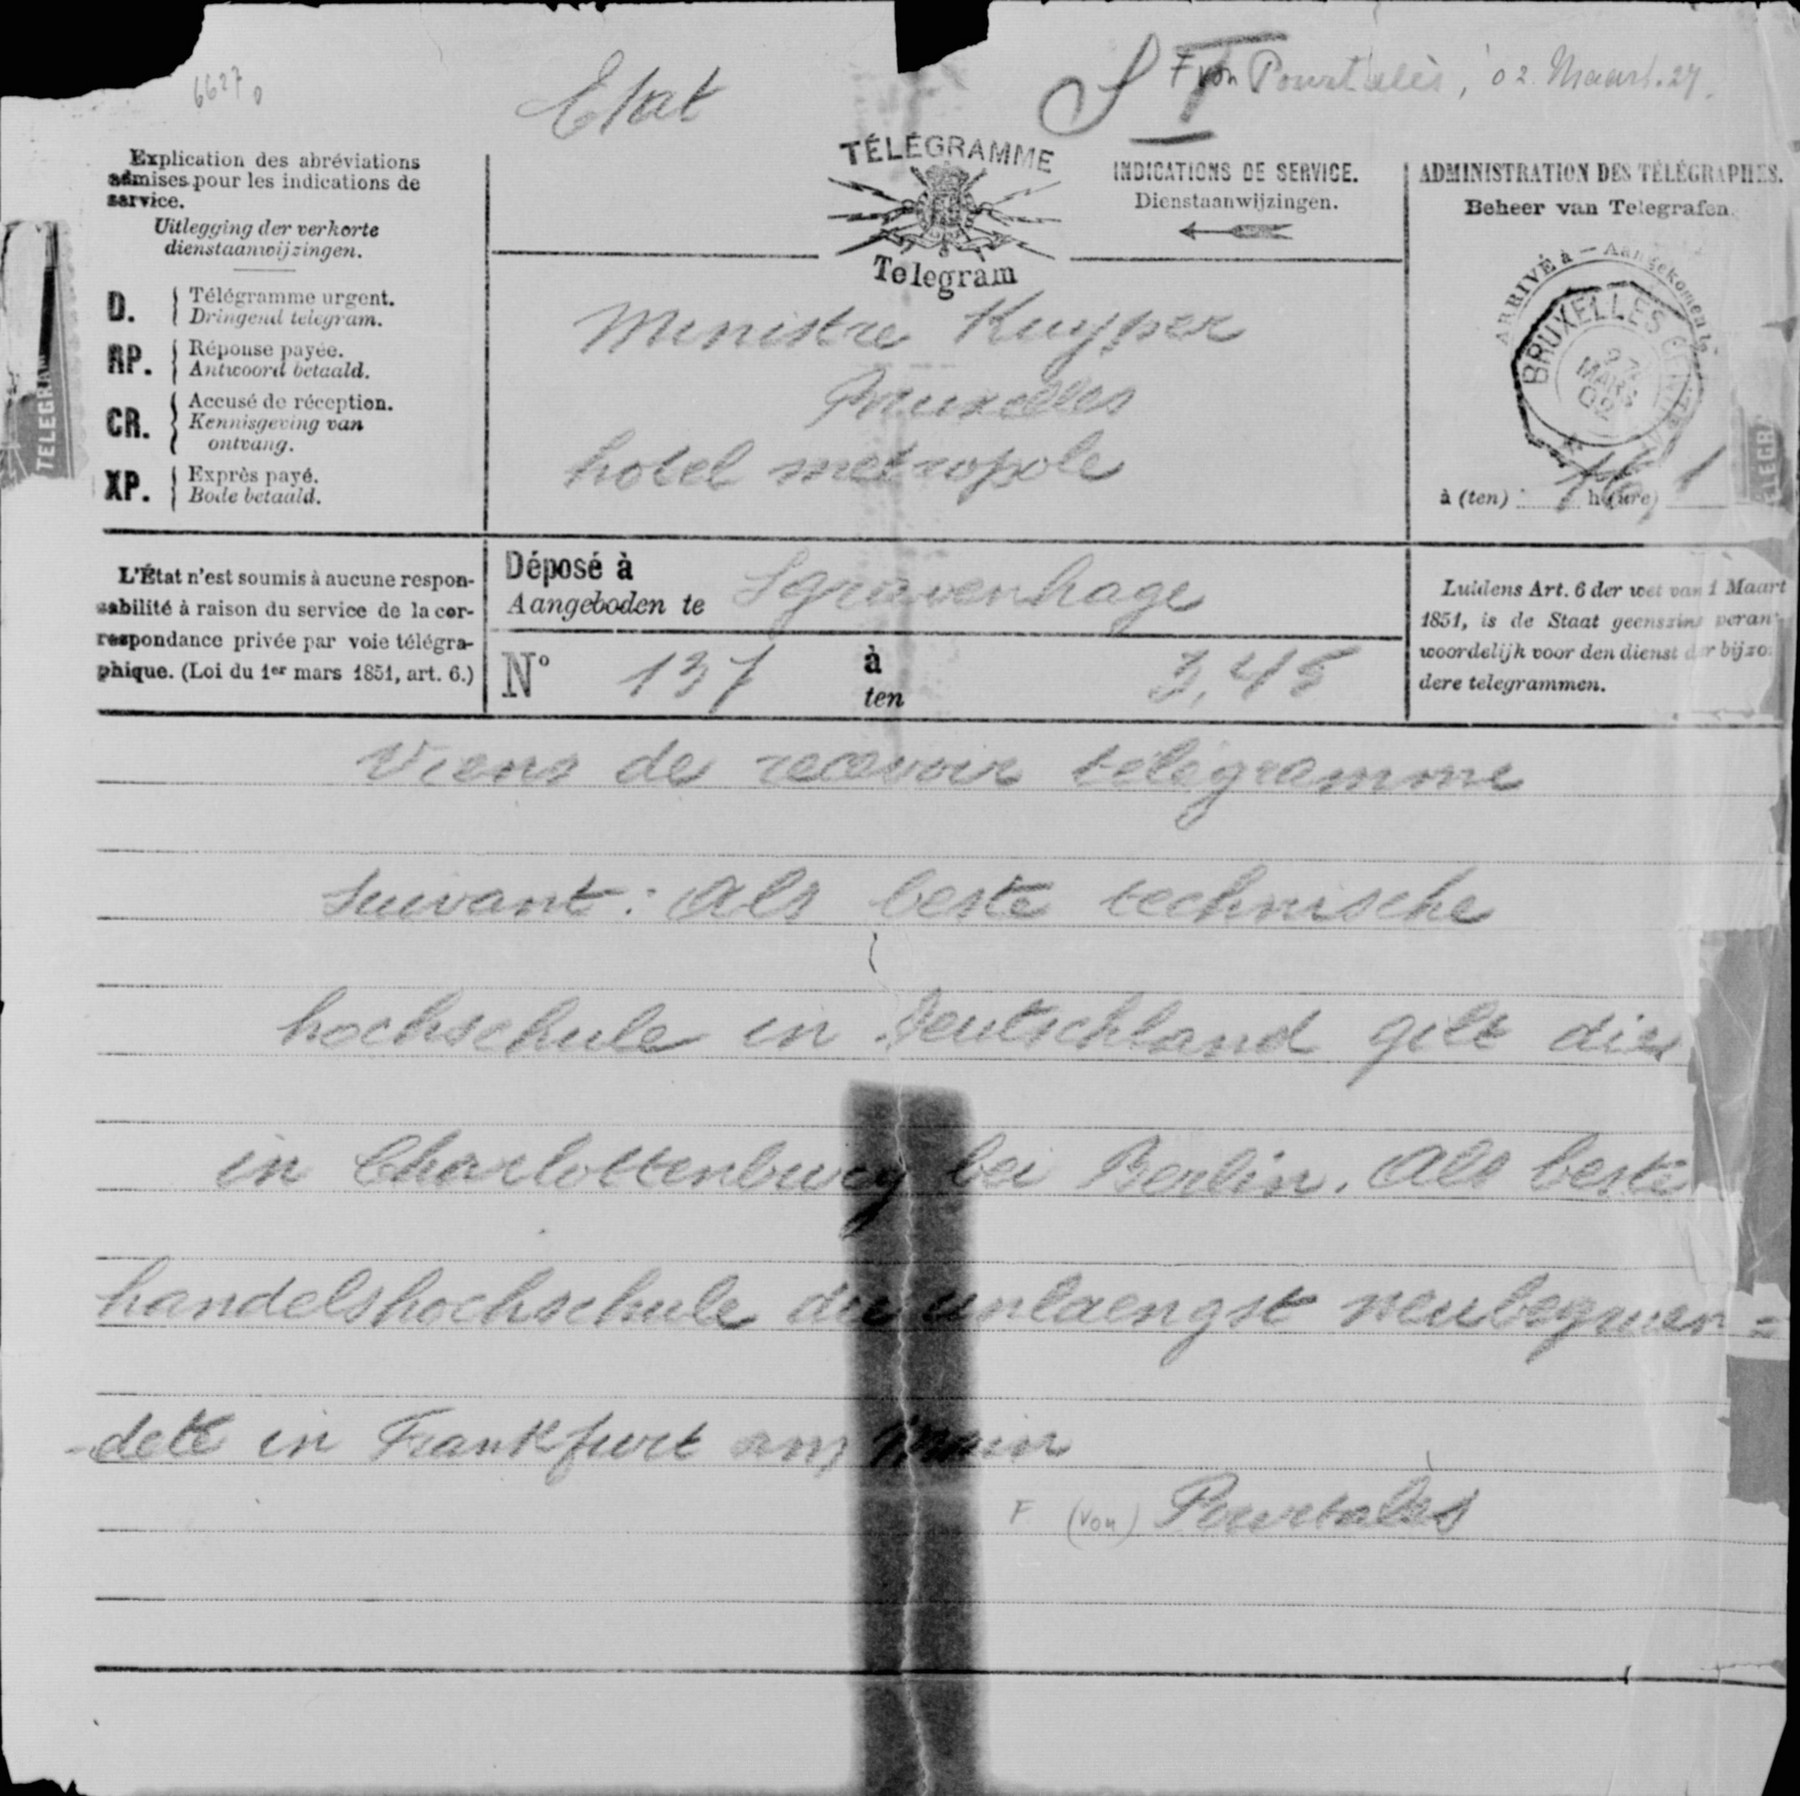 6627
Etat
S T
F von Pourtalès, '02. Maart. 27.
Explication des abréviations
admises pour les indications de
service.
Uitlegging der verkorte
dienstaanwijzingen.
D. { Télégramme urgent.
Dringend telegram.
RP. { Réponse payée.
Antwoord betaald.
CR. { Accusé de réception.
Kennisgeving van
ontvang.
XP. { Exprès payé.
Bode betaald.
TÉLÉGRAMME
Telegram
INDICATIONS DE SERVICE.
Dienstaanwijzingen.
ADMINISTRATION DES TÉLÉGRAPHES.
Beheer van Telegrafen.
ARRIVÉ à — Aangekomen te
BRUXELLES
27
MARS
02
à (ten) h (ure)
TELEGRA
Ministre Kuyper
Bruxelles
hotel metropole
L'État n'est soumis à aucune respon-
sabilité à raison du service de la cor-
respondance privée par voie télégra-
phique. (Loi du 1er mars 1851, art. 6.)
Déposé à
Aangeboden te Sgravenhage
N° 137 à
ten 3,45
Luidens Art. 6 der wet van 1 Maart
1851, is de Staat geenszins verant-
woordelijk voor den dienst der bijzon-
dere telegrammen.
Viens de recevoir télégramme
suivant: Als beste technische
hochschule in Deutschland gilt die
in Charlottenburg bei Berlin. Als beste
handelshochschule die unlaengst neubegruen=
-dete in Frankfurt am Main
F. (von) Pourtalès